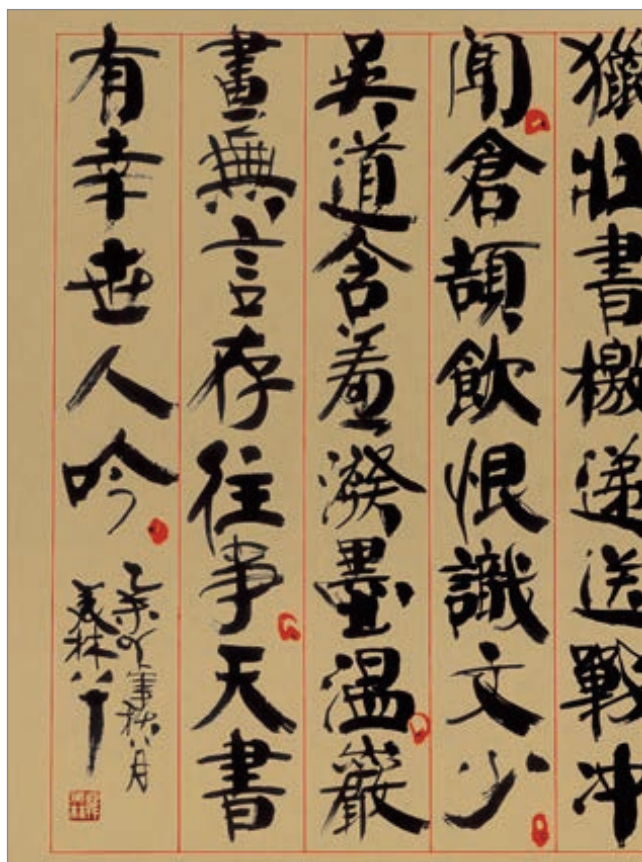 獵壯書檄递送戰冲
聞倉頡飲恨識文少
吳道含羞潑墨温巖
畫無言存往事天書
有幸世人吟
秋八月
美林八十